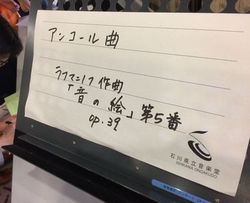 アンコール曲
ラフマニノフ作曲
「音の絵」第5番
op.39
石川県立音楽堂
ISHIKAWA ONGAKUDO